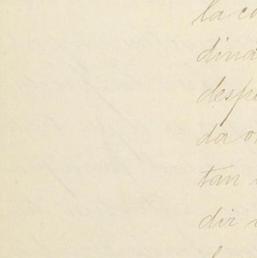 la co
dina
despu
da o
tan
dir